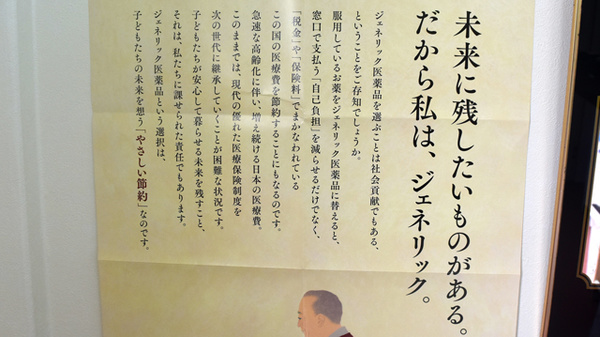 未来に残したいものがある。
だから私は、ジェネリック。
ジェネリック医薬品を選ぶことは社会貢献でもある、
ということをご存知でしょうか。
服用しているお薬をジェネリック医薬品に替えると、
窓口で支払う「自己負担」を減らせるだけでなく、
「税金」や「保険料」でまかなわれている
この国の医療費を節約することにもなるのです。
急速な高齢化に伴い、増え続ける日本の医療費。
このままでは、現代の優れた医療保険制度を
次の世代に継承していくことが困難な状況です。
子どもたちが安心して暮らせる未来を残すこと、
それは、私たちに課せられた責任でもあります。
ジェネリック医薬品という選択は、
子どもたちの未来を想う「やさしい節約」なのです。